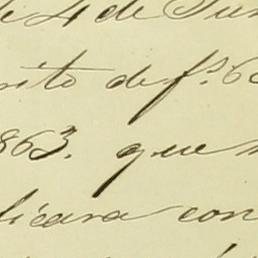 de 4 de Jun
rito de fs. 60
863. que
licara con